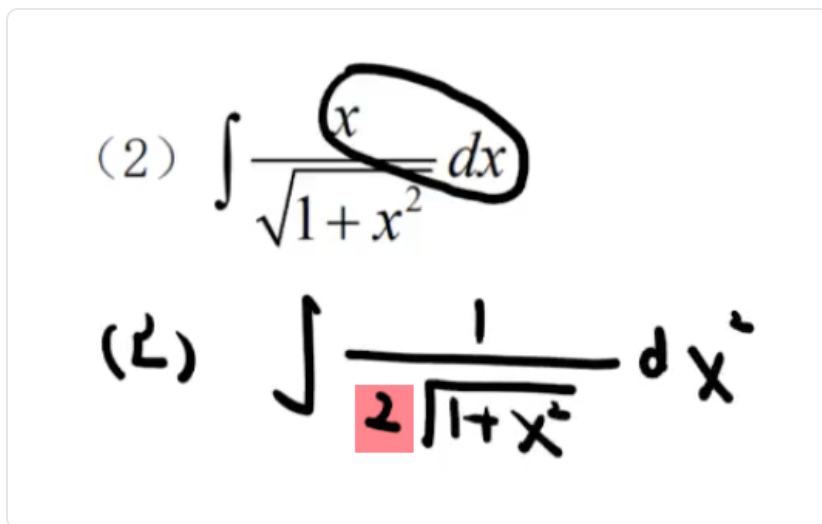 (2) ∫ x/√(1+x²) dx
(2) ∫ 1/(2√(1+x²)) dx²